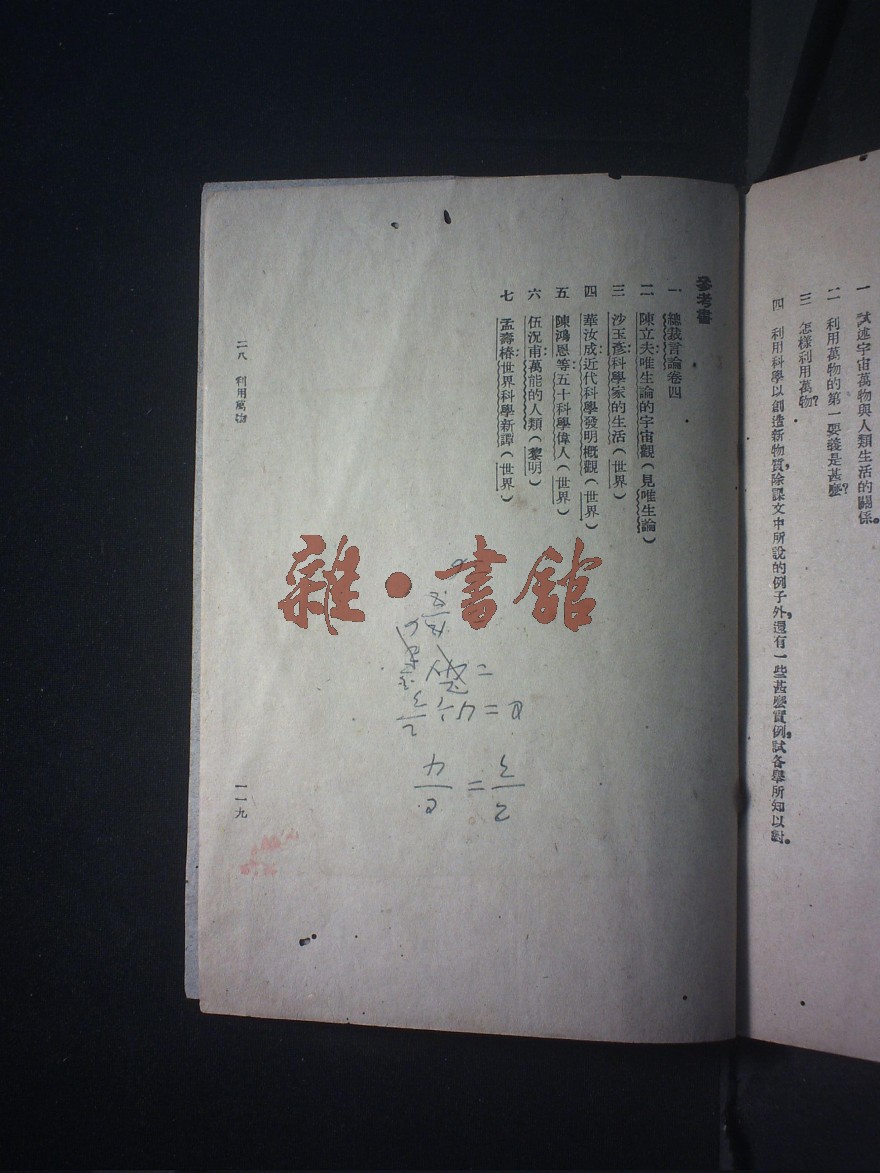 一　試述宇宙萬物與人類生活的關係。
二　利用萬物的第一要義是甚麼?
三　怎樣利用萬物?
四　利用科學以創造新物質,除課文中所說的例子外,還有一些甚麼實例,試各舉所知以對。
參考書
一　總裁言論卷四
二　陳立夫唯生論的宇宙觀(見唯生論)
三　沙玉彥科學家的生活(世界)
四　華汝成近代科學發明概觀(世界)
五　陳鴻恩等五十科學偉人(世界)
六　伍況甫萬能的人類(黎明)
七　孟壽椿世界科學新譚(世界)
二八　利用萬物
一一九
雜·書館